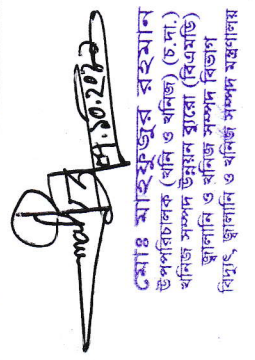 মোঃ মাহফুজুর রহমান
উপপরিচালক (খনি ও খনিজ) (চ.দা.)
খনিজ সম্পদ উন্নয়ন ব্যুরো (বিএমডি)
জ্বালানি ও খনিজ সম্পদ বিভাগ
বিদ্যুৎ, জ্বালানি ও খনিজ সম্পদ মন্ত্রণালয়